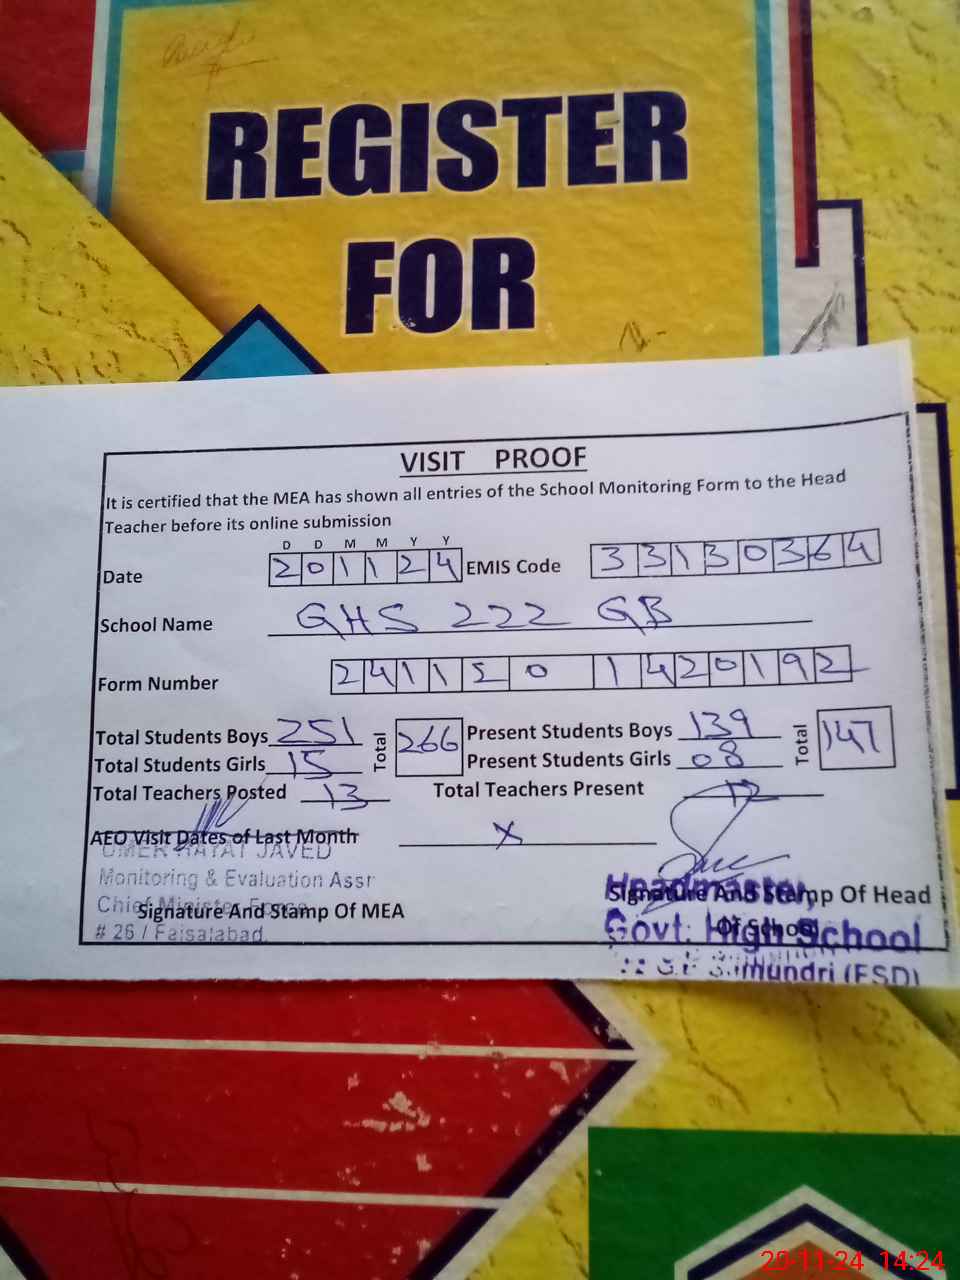 REGISTER
FOR
VISIT PROOF
It is certified that the MEA has shown all entries of the School Monitoring Form to the Head
Teacher before its online submission
D D M M Y Y
Date 201124 EMIS Code 33130364
School Name GHS 222 GB
Form Number
Total Students Boys 251 Total 266 Present Students Boys 139 Total 147
Total Students Girls 15 Present Students Girls 08
Total Teachers Posted 13 Total Teachers Present 12
AEO Visit Dates of Last Month X
OMER HAYAT JAVED
Monitoring & Evaluation Assr
Chief Minister Force
Signature And Stamp Of MEA
# 26 / Faisalabad
Headmaster
Signature And Stamp Of Head
Of School
Govt. High School
G.B Samundri (FSD)
20-11-24 14:24